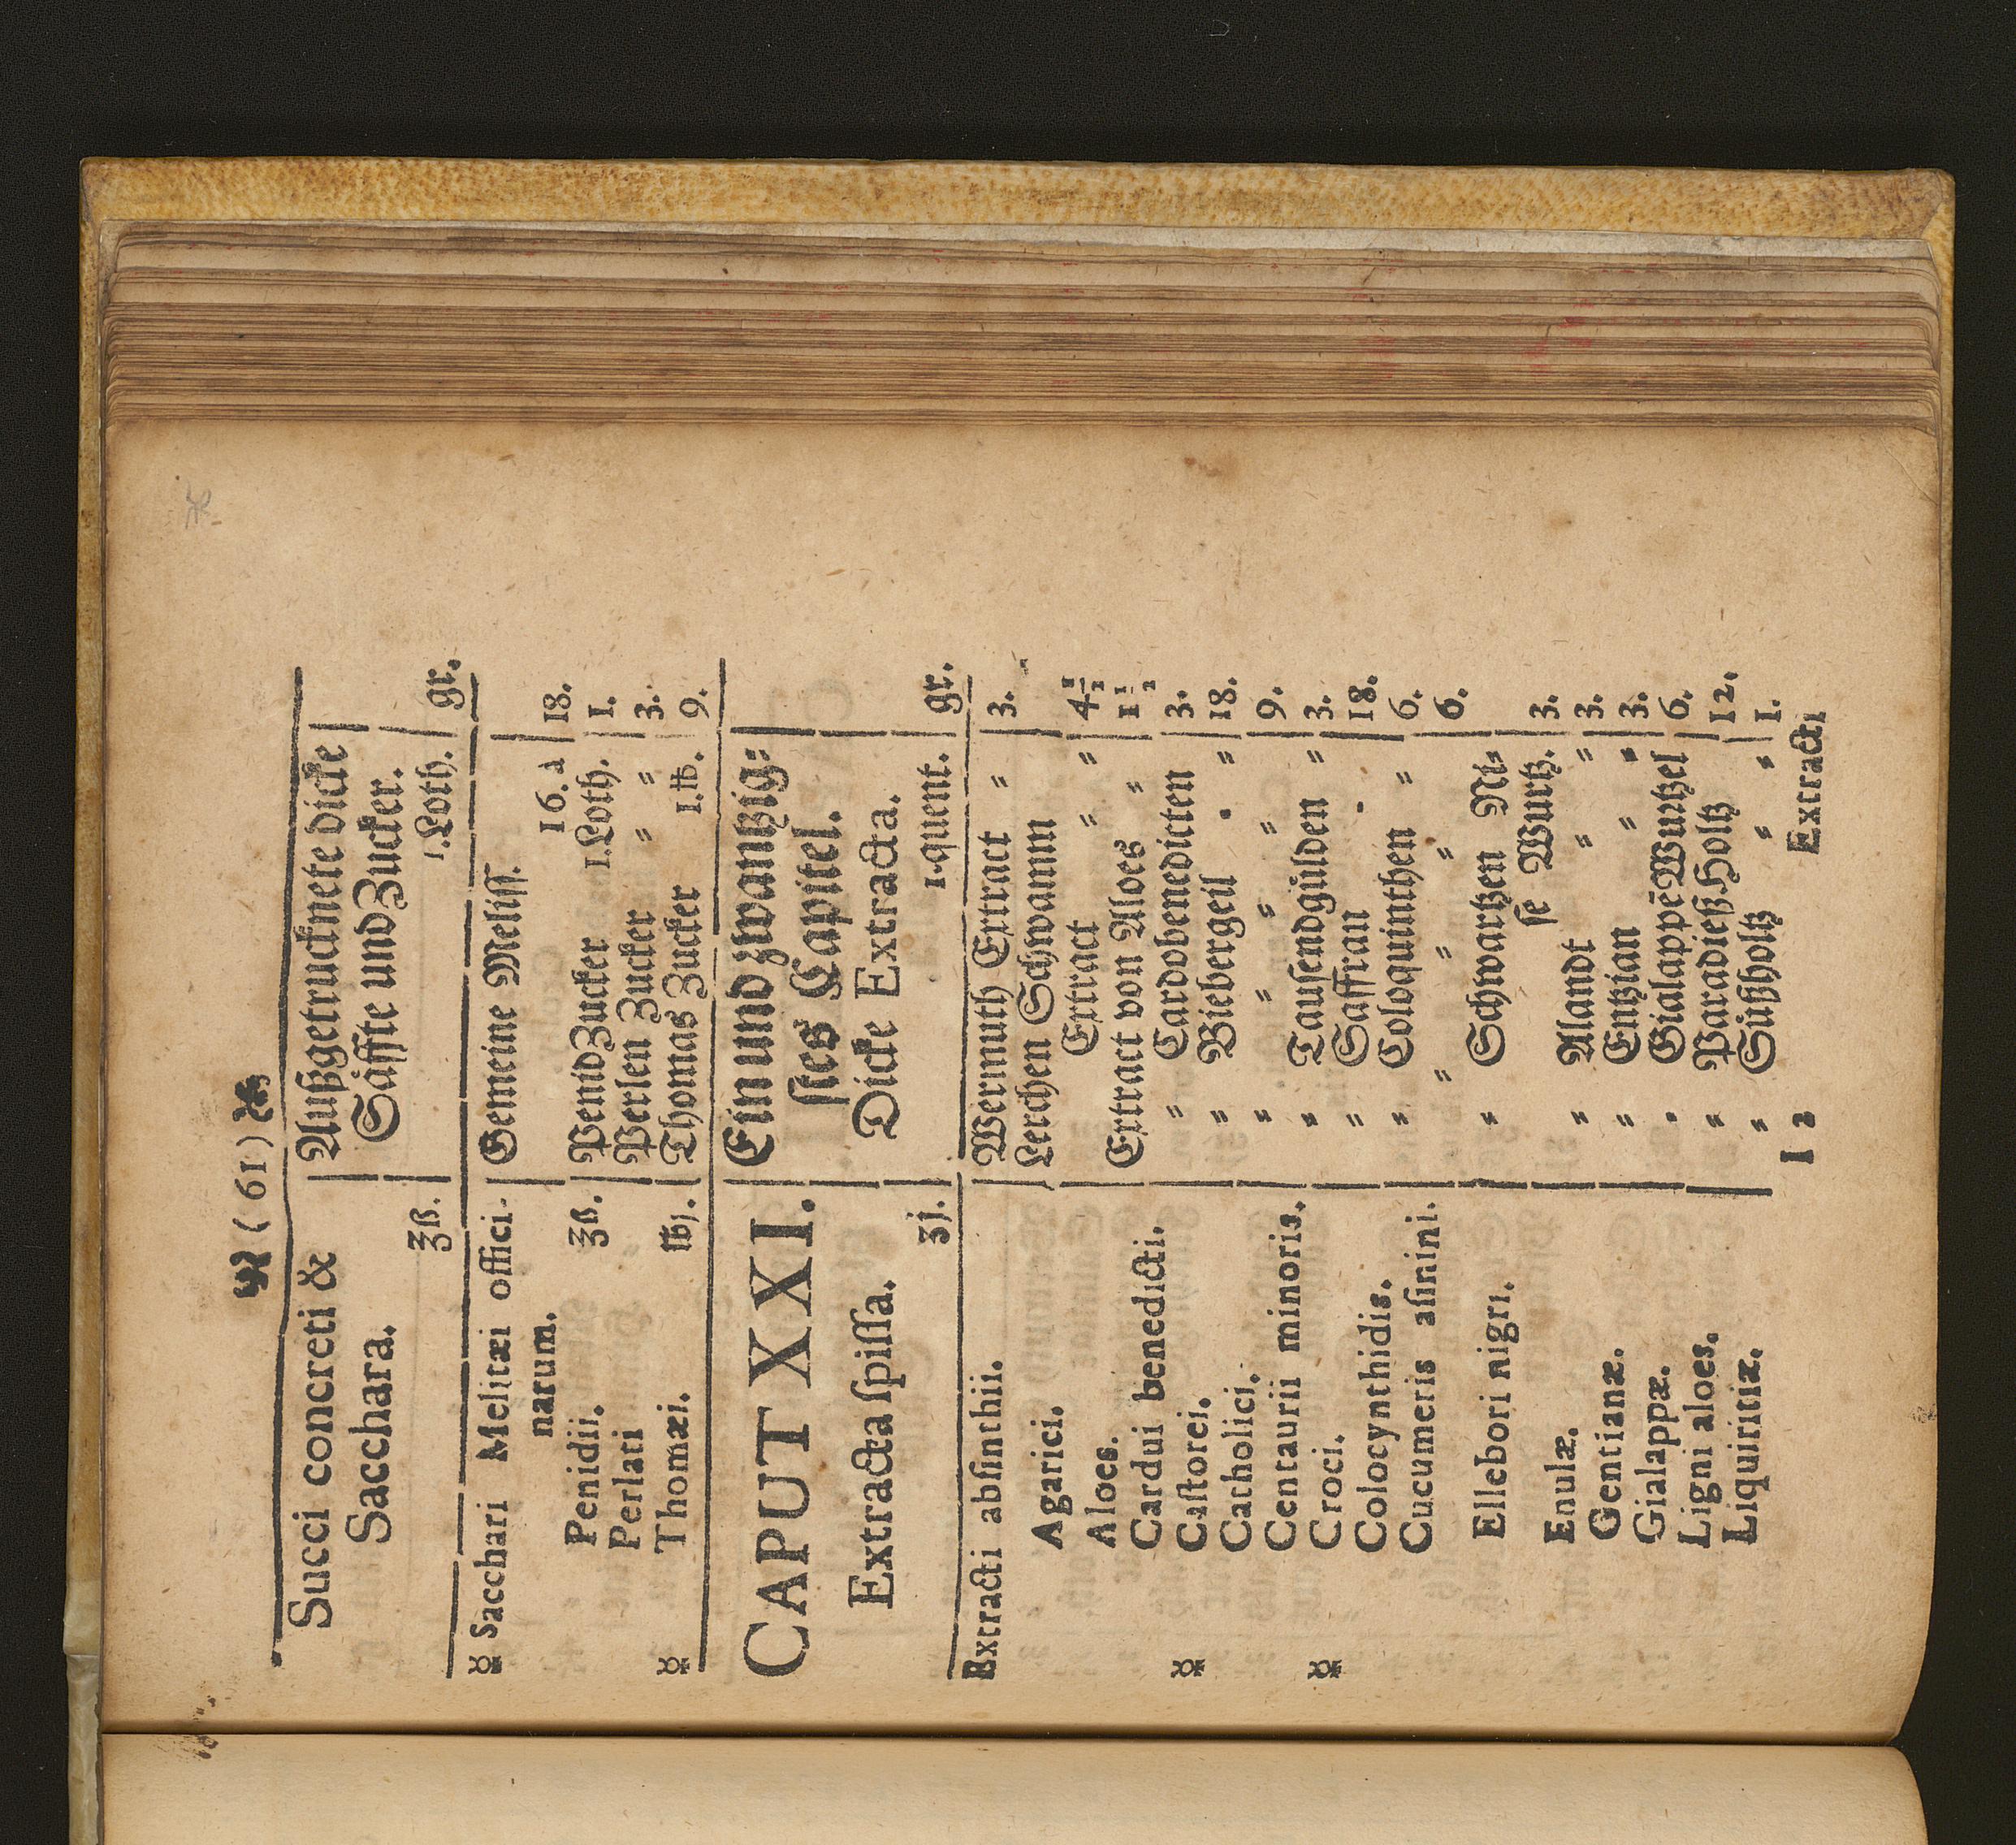 ( 61 )
Succi concreti & | Außgetrucknete dicke |
Sacchara. | Säffte und Zucker. |
℥ß. | 1. Loth. | gr.
Sacchari Melitæi offici- | Gemeine Meliss. |
narum. | 16. à | 18.
Penidii. ℥ß. | Penid Zucker 1. Loth. | 1.
Perlati | Perlen Zucker " " | 3.
Thomæi. ℔j. | Thomas Zucker 1. ℔. | 9.
CAPUT XXI. | Ein und zwantzig-
stes Capitel.
Extracta spissa. | Dicke Extracta.
ʒj. | 1. quent. | gr.
Extracti absinthii. | Wermuth Extract " | 3.
Agarici. | Lerchen Schwamm
Extract " " | 4½
Aloes. | Extract von Aloes " | 1½
Cardui benedicti. | " Cardobenedicten | 3.
Castorei. | " Biebergeil " " | 18.
Catholici. | " " " " | 9.
Centaurii minoris. | " Tausendgülden " | 3.
Croci. | " Saffran " | 18.
Colocynthidis. | " Coloquinthen " | 6.
Cucumeris asinini. | " " " | 6.
Ellebori nigri. | " Schwartzen Ni-
se Wurtz. | 3.
Enulæ. | " Alandt " " | 3.
Gentianæ. | " Entzian " " | 3.
Gialappæ. | " Gialappē Wurtzel | 6.
Ligni aloes. | " Paradieß Holtz | 12.
Liquiritiæ. | " Süßholtz " " | 1.
I 2 Extracti